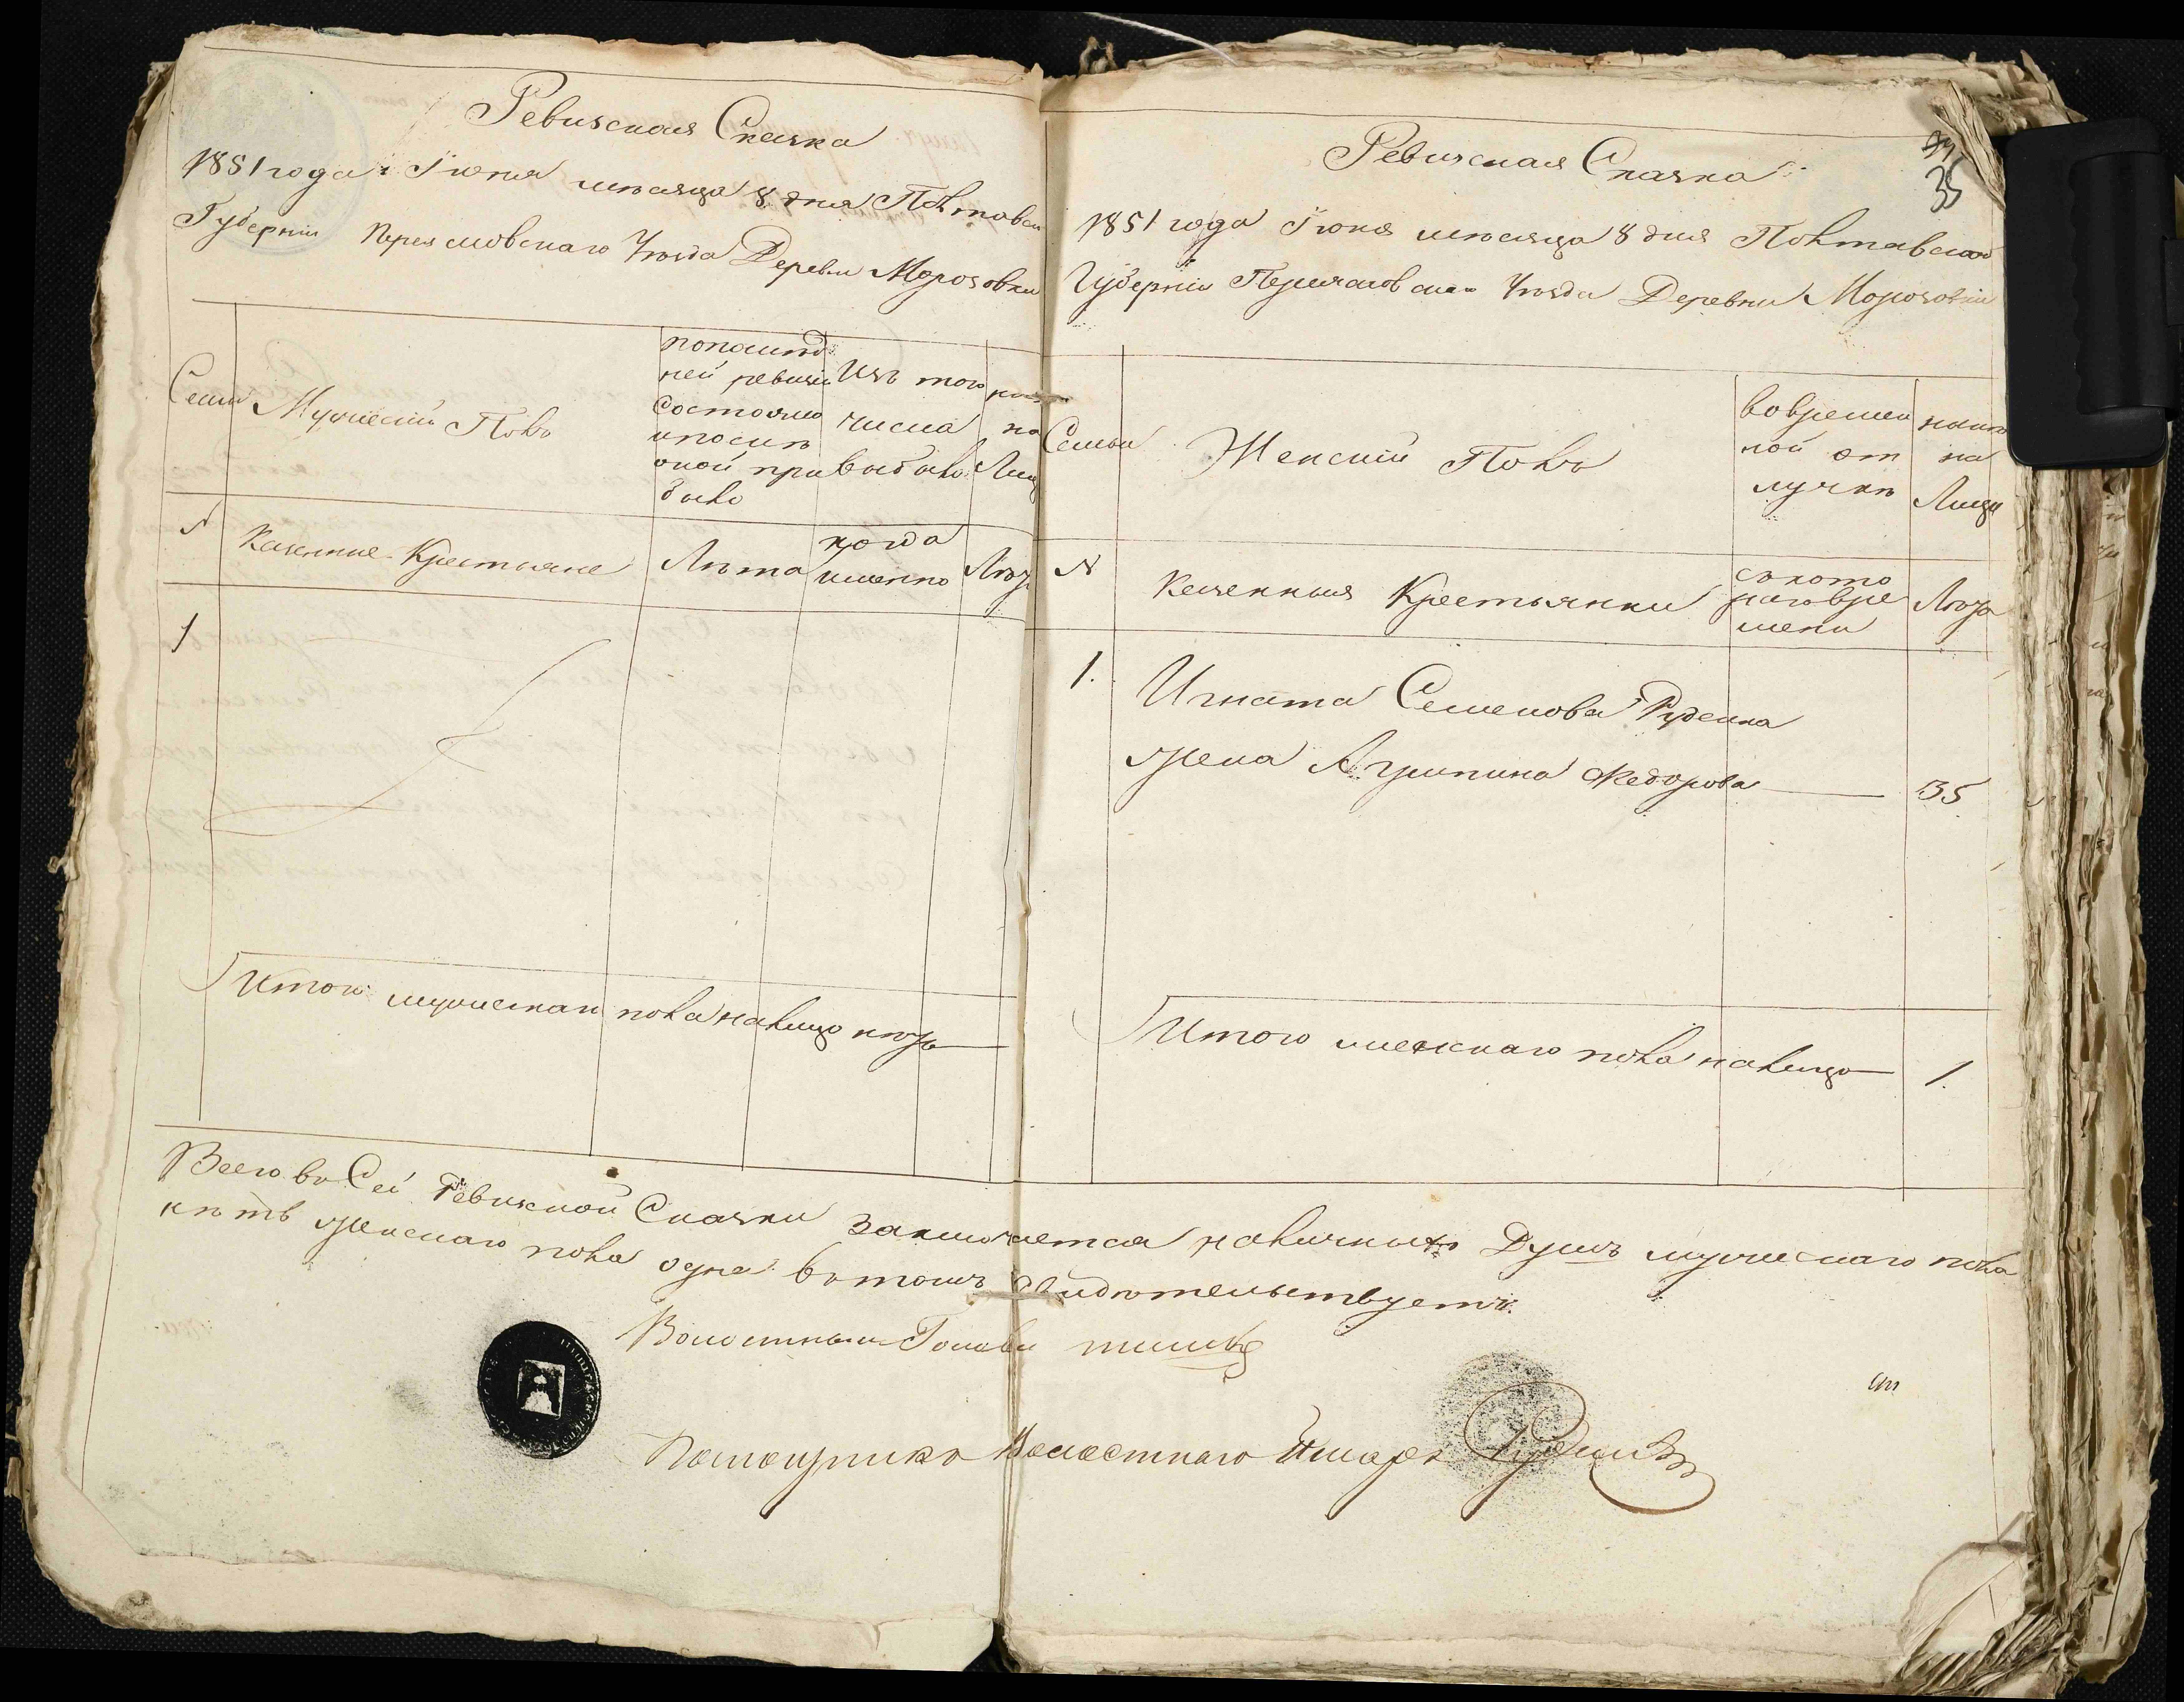 Ревизская Сказка
1851 года Июня месяца 8 дня Полтавской
Губернии Переяславскаго Уезда Деревни Морозовки
Семьи
Мужеский Полъ
по послед
ней ревизии
состояло
и после
оной при
было
Изъ того
числа
выбыло
ны
на
Лицо
№
Казенные Крестьяне
Лета
когда
именно
Лета
1
Итого мужескаго пола налицо нетъ
Ревизская Сказка
34
35
1851 года Июня месяца 8 дня Полтавской
Губернии Переяславскаго Уезда Деревни Морозовки
Семьи
Женский Полъ
во времен
ной от
лучке
ныне
на
Лицо
№
Казенныя Крестьянки
съ кото
раго вре
мени
Лета
1.
Игната Семенова Руденка
жена Агрипина Федорова 35
Итого женскаго пола налицо 1.
Всего въ Сей Ревизской Сказки заключается наличныхъ Душъ мужескаго пола
нетъ женскаго пола одна въ томъ свидетельствуетъ.
Волостный Голова
Помощникъ Волостнаго Писаря